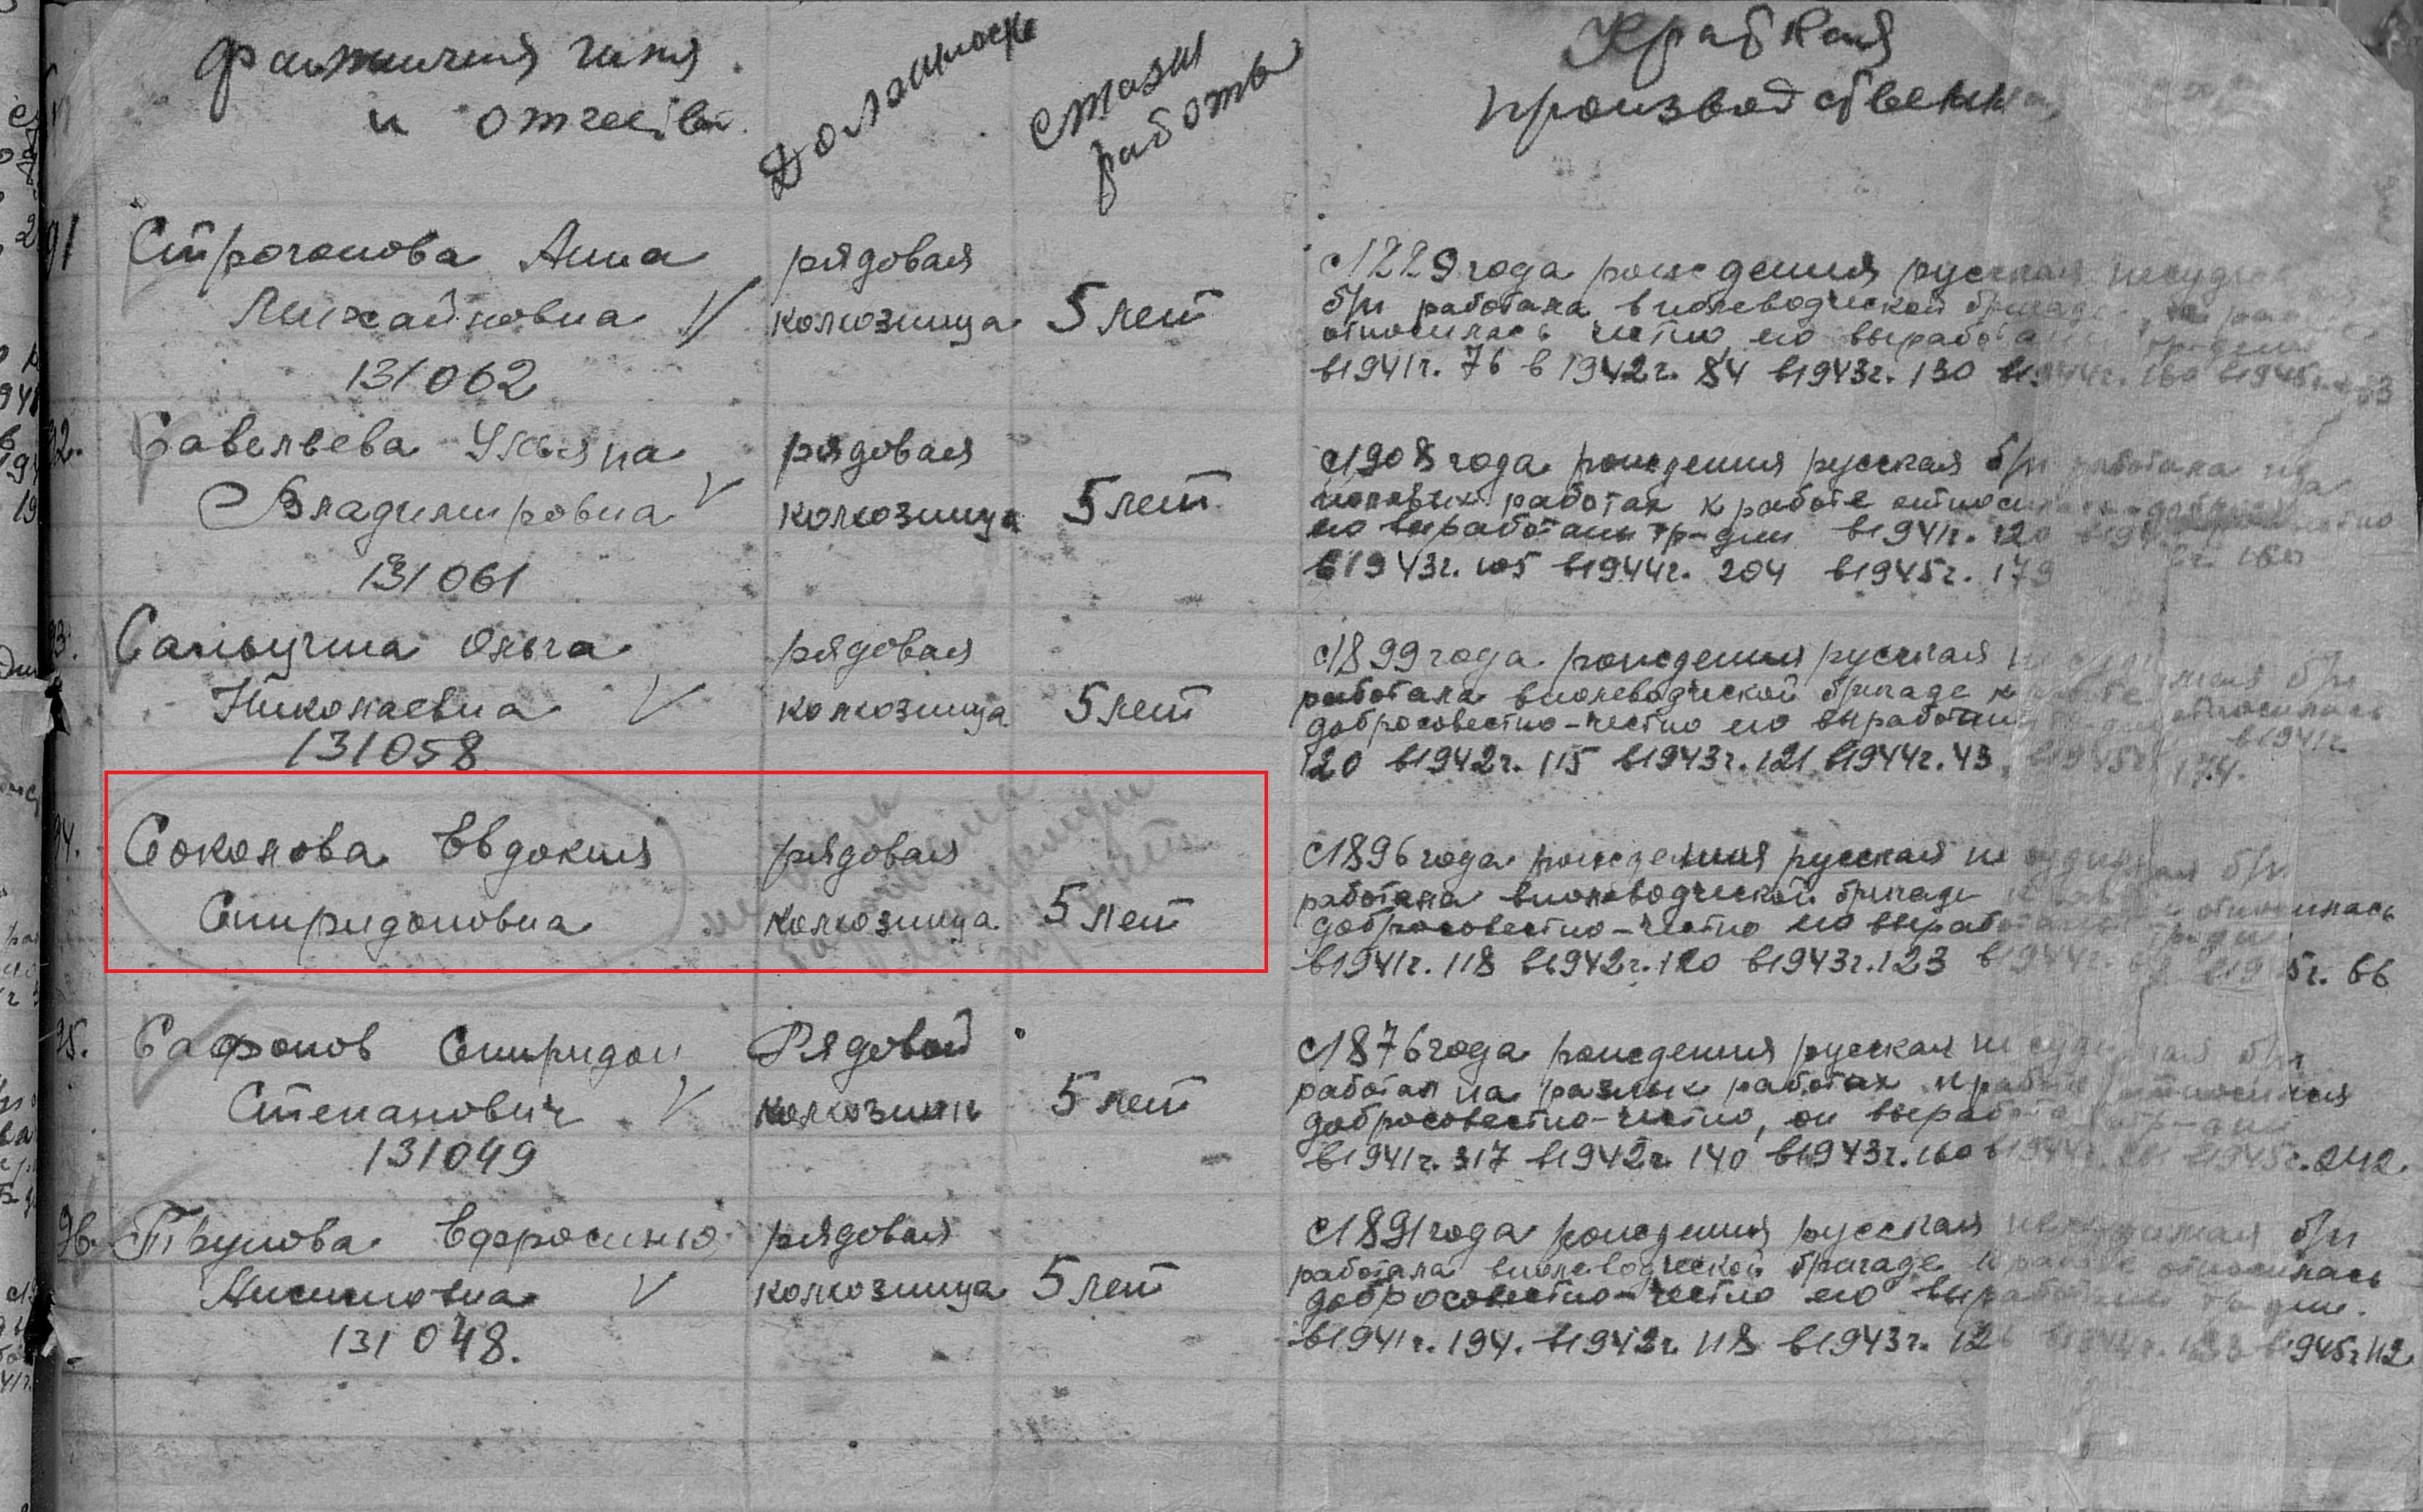 Фамилия имя
и отчество
Должность
Стаж работы
Краткая
производственн
91 Строгонова Анна
Михайловна V
131062
рядовая
колхозница
5 лет
с1229 года рождения русская несуд
б/п работала в полеводческой бригаде,
относилась честно, ею выработа
в1941г. 76 в 1942г. 84 в1943г. 130 в1944г. 160 в1945г.
92. Савельева Ульяна
Владимировна V
131061
рядовая
колхозница
5 лет
с1908 года рождения русская б/п работала на
полевых работах к работе относилась
ею выработаны тр-дни в1941г. 120
в1943г. 105 в1944г. 204 в1945г. 179
93. Сальцина Ольга
Николаевна V
131058
рядовая
колхозница
5 лет
с1899 года рождения русская б/п
работала в полеводческой бригаде к работе относилась
добросовестно-честно ею выработаны в1941г
120 в1942г. 115 в1943г. 121 в1944г. 43, в1945г 174.
94. Соколова Евдокия
Спиридоновна
рядовая
колхозница
5 лет
с1896 года рождения русская не судимая б/п
работала в полеводческой бригаде к работе относилась
добросовестно-честно ею выработаны тр-дни
в1941г. 118 в1942г. 120 в1943г. 123 в1944г. в1945г. 66
95. Сафонов Спиридон
Степанович V
131049
Рядовой
колхозник
5 лет
с1876 года рождения русская не судимая б/п
работал на разных работах к работе относился
добросовестно-честно, он выработал тр-дни
в1941г. 317 в1942г. 140 в1943г. 160 в1944г. 201 в1945г. 242.
96. Трунова Ефросинья
Анисимовна V
131048.
рядовая
колхозница
5 лет
с1891 года рождения русская не судимая б/п
работала в полеводческой бригаде к работе относилась
добросовестно-честно ею выработаны тр-дни.
в1941г. 194. в1942г. 118 в1943г. в1945г 112